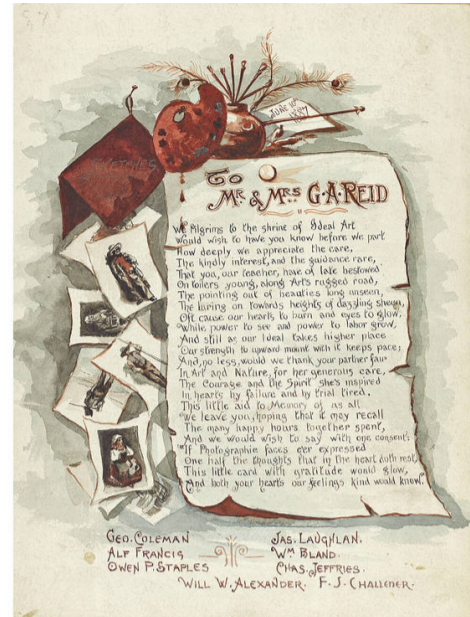 SKETCHES
JUNE 10th
1887
TO
MR & MRS G.A. REID
We Pilgrims to the shrine of Ideal Art
Would wish to have you know before we part
How deeply we appreciate the care,
The kindly interest, and the guidance rare,
That you, our teacher, have of late bestowed
On toilers young, along Art's rugged road,
The pointing out of beauties long unseen,
The luring on towards heights of dazzling sheen,
Oft cause our hearts to burn and eyes to glow.
While power to see and power to labor grow,
And still as our Ideal takes higher place
Our strength to upward mount with it keeps pace;
And, no less, would we thank your partner fair
In Art and Nature, for her generous care,
The Courage and the Spirit she's inspired
In hearts by failure and by trial tired.
This little aid to Memory of us all
We leave you, hoping that it may recall
The many happy hours together spent,
And we would wish to say with one consent:
"If Photographic faces e'er expressed
One half the thoughts that in the heart doth rest,
This little card with gratitude would glow,
And both your hearts our feelings kind would know."
GEO. COLEMAN JAS. LAUGHLAN.
ALF FRANCIS WM BLAND.
OWEN P. STAPLES CHAS. JEFFRIES.
WILL W. ALEXANDER. F. S. CHALLENER.